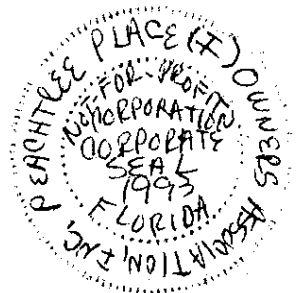 PEACHTREE PLACE (I) OWNERS ASSOCIATION, INC.
NOT-FOR-PROFIT
CORPORATION
CORPORATE
SEAL
1993
FLORIDA